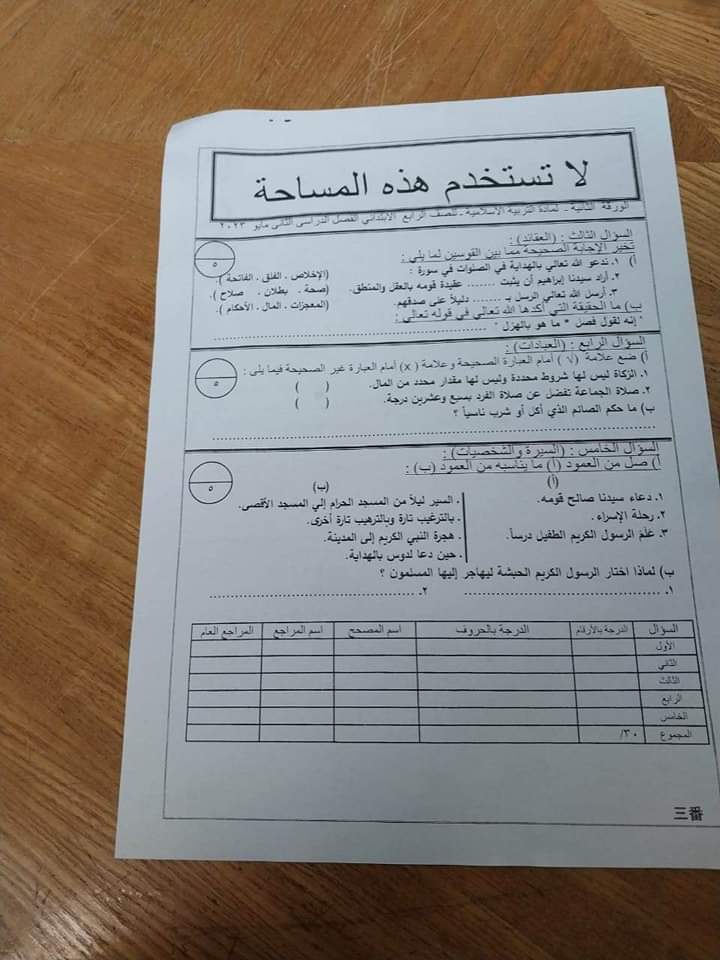 لا تستخدم هذه المساحة
الورقة الثانية - لمادة التربية الاسلامية - للصف الرابع الابتدائي الفصل الدراسي الثاني مايو ٢٠٢٣
السؤال الثالث : (العقائد) :
تخير الإجابة الصحيحة مما بين القوسين لما يلي :
٥
أ) ١. ندعو الله تعالي بالهداية في الصلوات في سورة : (الإخلاص . الفلق . الفاتحة ).
٢. أراد سيدنا إبراهيم أن يثبت ....... عقيدة قومه بالعقل والمنطق. (صحة . بطلان . صلاح ).
٣. أرسل الله تعالي الرسل بـ ....... دليلاً على صدقهم. (المعجزات . المال . الأحكام ).
ب) ما الحقيقة التي أكدها الله تعالي في قوله تعالي :
" إنه لقول فصل * ما هو بالهزل " ................................................
السؤال الرابع : (العبادات) :
أ) ضع علامة (√ ) أمام العبارة الصحيحة وعلامة ( x) أمام العبارة غير الصحيحة فيما يلي :
٥
١. الزكاة ليس لها شروط محددة وليس لها مقدار محدد من المال. ( )
٢. صلاة الجماعة تفضل عن صلاة الفرد بسبع وعشرين درجة. ( )
ب) ما حكم الصائم الذي أكل أو شرب ناسياً ؟
................................................................................
السؤال الخامس : (السيرة والشخصيات) :
أ) صل من العمود (أ) ما يناسبه من العمود (ب) :
٥
(أ) (ب)
١. دعاء سيدنا صالح قومه. . السير ليلاً من المسجد الحرام إلي المسجد الأقصى.
٢. رحلة الإسراء. . بالترغيب تارة وبالترهيب تارة أخرى.
٣. علم الرسول الكريم الطفيل درساً. . هجرة النبي الكريم إلى المدينة.
. حين دعا لدوس بالهداية.
ب) لماذا اختار الرسول الكريم الحبشة ليهاجر إليها المسلمون ؟
١. ............................................ ٢. ............................................
السؤال الدرجة بالأرقام الدرجة بالحروف اسم المصحح اسم المراجع المراجع العام
الأول
الثاني
الثالث
الرابع
الخامس
المجموع /٣٠
三番